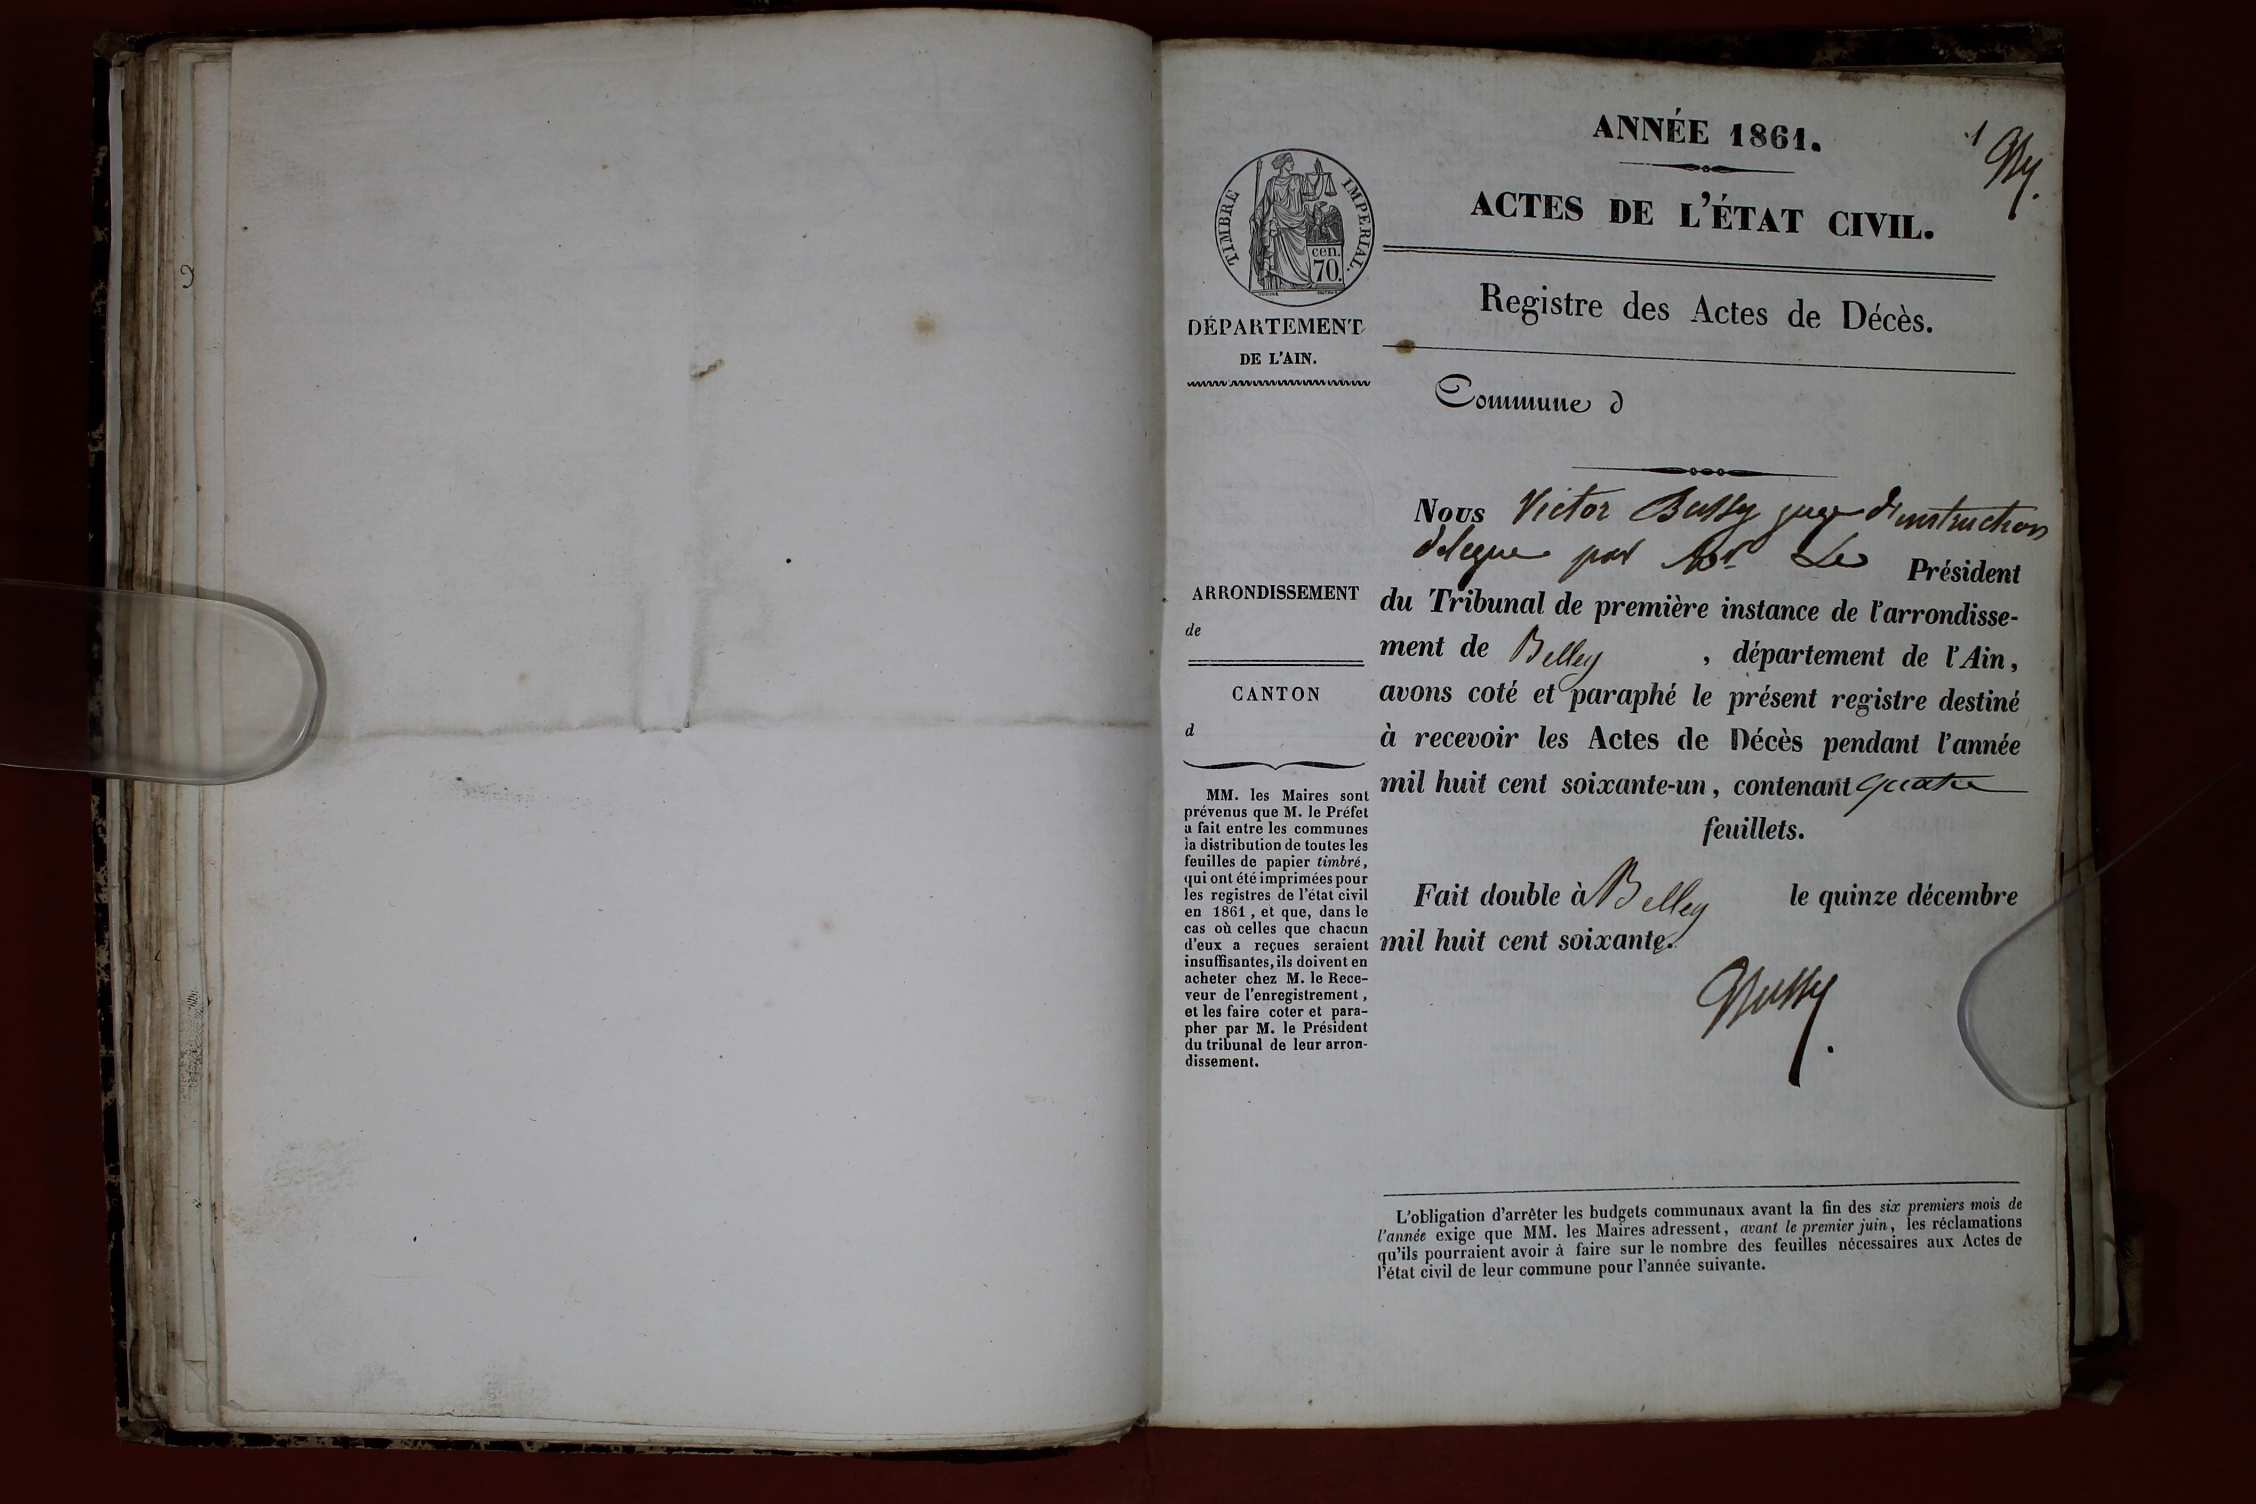 ANNÉE 1861.
1 By.
ACTES DE L'ÉTAT CIVIL.
TIMBRE IMPERIAL.
cen.
70.
Registre des Actes de Décès.
DÉPARTEMENT
DE L'AIN.
Commune d
ARRONDISSEMENT
de
CANTON
d
MM. les Maires sont
prévenus que M. le Préfet
a fait entre les communes
la distribution de toutes les
feuilles de papier timbré,
qui ont été imprimées pour
les registres de l'état civil
en 1861, et que, dans le
cas où celles que chacun
d'eux a reçues seraient
insuffisantes, ils doivent en
acheter chez M. le Rece-
veur de l'enregistrement,
et les faire coter et para-
pher par M. le Président
du tribunal de leur arron-
dissement.
Nous Victor Bussy juge d'instruction
delegue par Mr Le Président
du Tribunal de première instance de l'arrondisse-
ment de Belley, département de l'Ain,
avons coté et paraphé le présent registre destiné
à recevoir les Actes de Décès pendant l'année
mil huit cent soixante-un, contenant quatre
feuillets.
Fait double à Belley le quinze décembre
mil huit cent soixante.
Bussy
L'obligation d'arrêter les budgets communaux avant la fin des six premiers mois de
l'année exige que MM. les Maires adressent, avant le premier juin, les réclamations
qu'ils pourraient avoir à faire sur le nombre des feuilles nécessaires aux Actes de
l'état civil de leur commune pour l'année suivante.